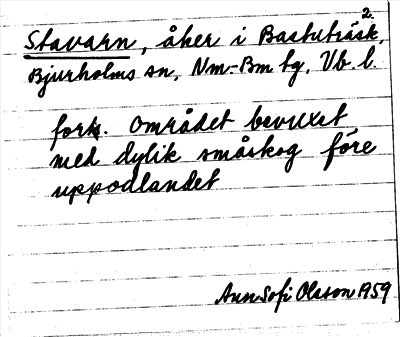 2.
Stavarn, åker i Bastuträsk,
Bjurholms sn, Nm.-Bm tg, Vb. l.
fork. Området bevuxet
med dylik småskog före
uppodlandet
Ann Sofi Olsson 1959